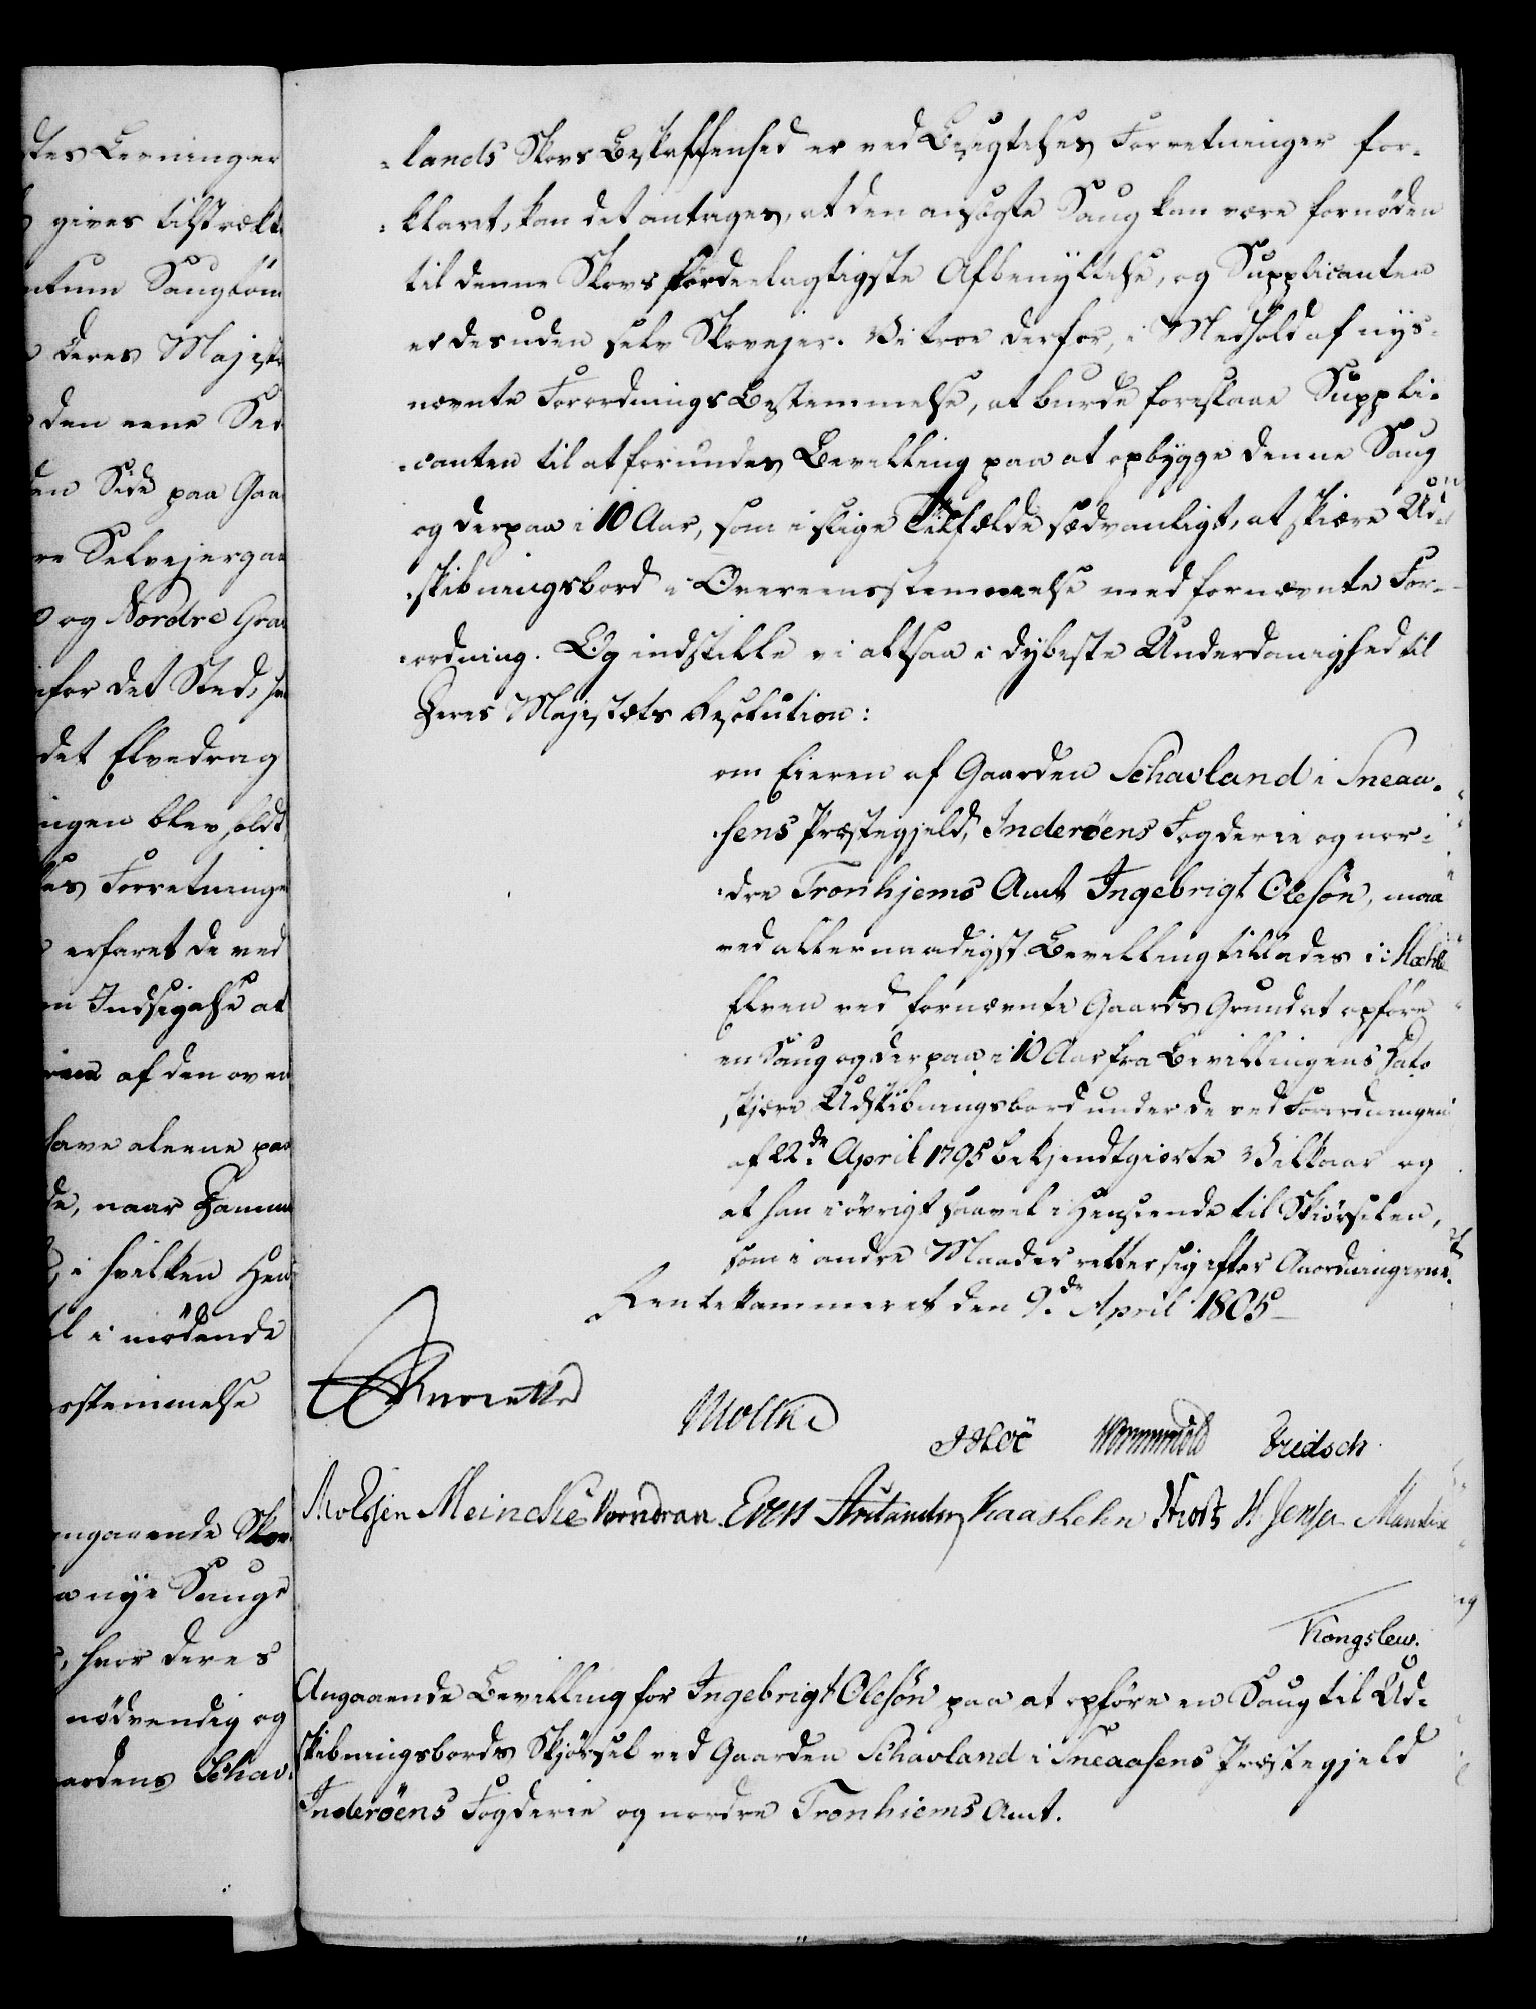 dtes Leeninger
gives tilstrækk
ntum Saugtöm
Deres Majestæ
den eene Sei
den Side paa Gaa
re Selvejergaa
og Nordre Gra
for det Sted, h
det Elvedrag
ingen blev holdt
es Forretninge
erfaret de ved
en Indsigelse at
af den oven
have aleene paa
de, naar Damme
i hvilken Hen
l i mødende
sstemmelse
angaaende Skov
a nye Sauge
, hvor deres
nödvendig og
ardens Schav-
-lands Skovs Beskaffenhed er ved Besigtelses Forretninger for-
-klaret, kan det antages, at den ansøgte Saug kan være fornöden
til denne Skovs fordeelagtigste Afbenÿttelse, og Supplicanten
er desuden selv Skovejer. Vi troe derfor, i Medhold af nÿs-
nævnte Forordnings Bestemmelse, at burde foreslaae Suppli-
-canten til at forundes Bevilling paa at opbygge denne Saug
og derpaa i 10 Aar, som i slige Tilfælde sædvanligt, at skiære Ud-
-skibningsbord i Overeensstemmelse med fornævnte For-
-ordning. Og indstille vi altsaa i dybeste Underdanighed til
Deres Majestæts Resolution:
om Eieren af Gaarden Schavland i Sneaa-
-sens Præstegjeld, Inderöens Fogderie og nor-
-dre Tronhjems Amt Ingebrigt Olesön, maa
ved allernaadigst Bevilling tillades i
Elven ved fornævnte Gaards Grund at opföre
en Saug og derpaa i 10 Aar fra Bevillingens Dato
skjære Udskibningsbord under de ved Forordningen
af 22de April 1795 bekjendtgiorte Vilkaar og
at han iövrigt saavel i Henseende til Skiörselen,
som i andre Maader retter sig efter Anordningerne.
Rentekammeret den 9de April 1805
Moltke
Wormskiold
Meincke Vorndran Evers Kaaslehn H Jensen
Kongslew.
Angaaende Bevilling for Ingebrigt Olesön paa at opföre en Saug til Ud-
skibningsbords Skjörsel ved Gaarden Schavland i Sneaasens Præstegjeld
Inderöens Fogderie og nordre Tronhiems Amt.